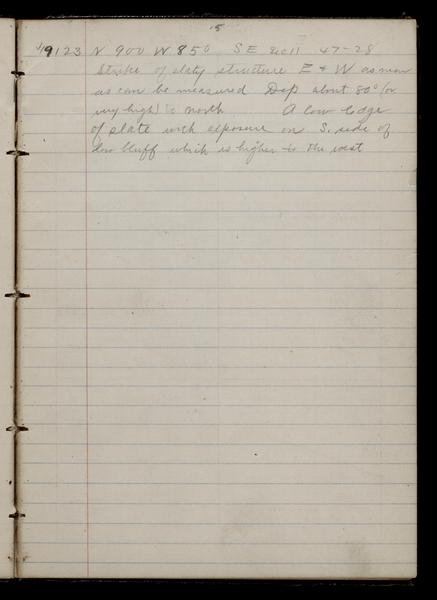 15
49123 N 900 W 850 S E Sec 11 47-28
Strike of slaty structure E & W as near
as can be measured Dip about 80° (or
very high) to north A low ledge
of slate with exposure on S. side of
low bluff which is higher to the west